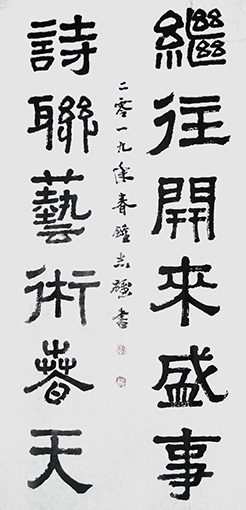 繼往開來盛事
詩聯藝術春天
二零一九年春鐘志書